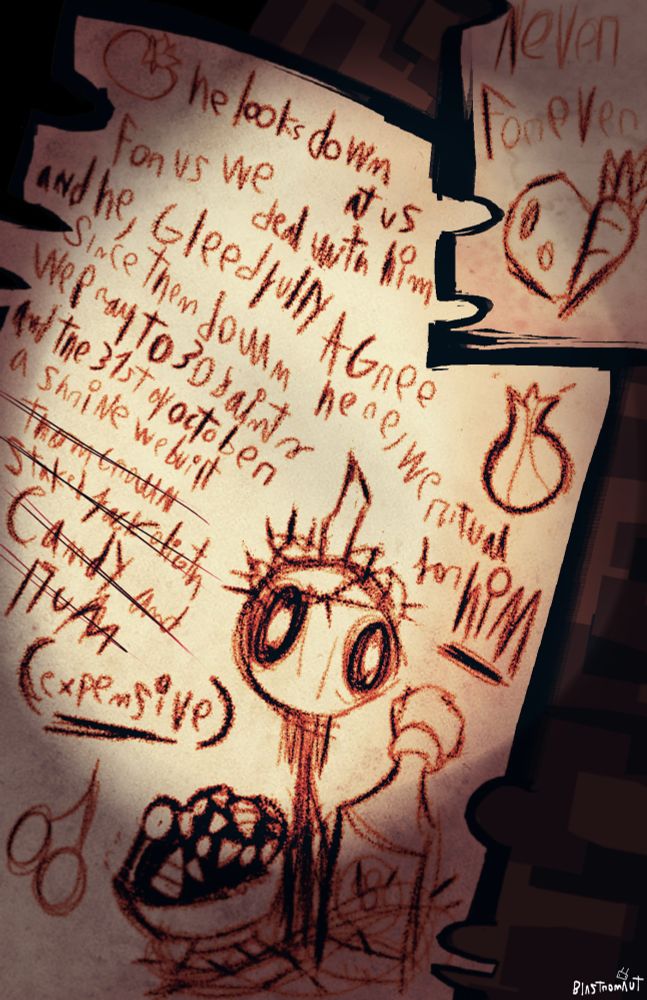 he looks down at us
for us we ded with him
and he, Gleedfully Agree
since then down here, we ritual for him
we pray to 30 saints
and the 31st of october
a shrine we built
Thorn crown
Candy and
Rum
(expensive)
Never
Forever
BlAstromAut